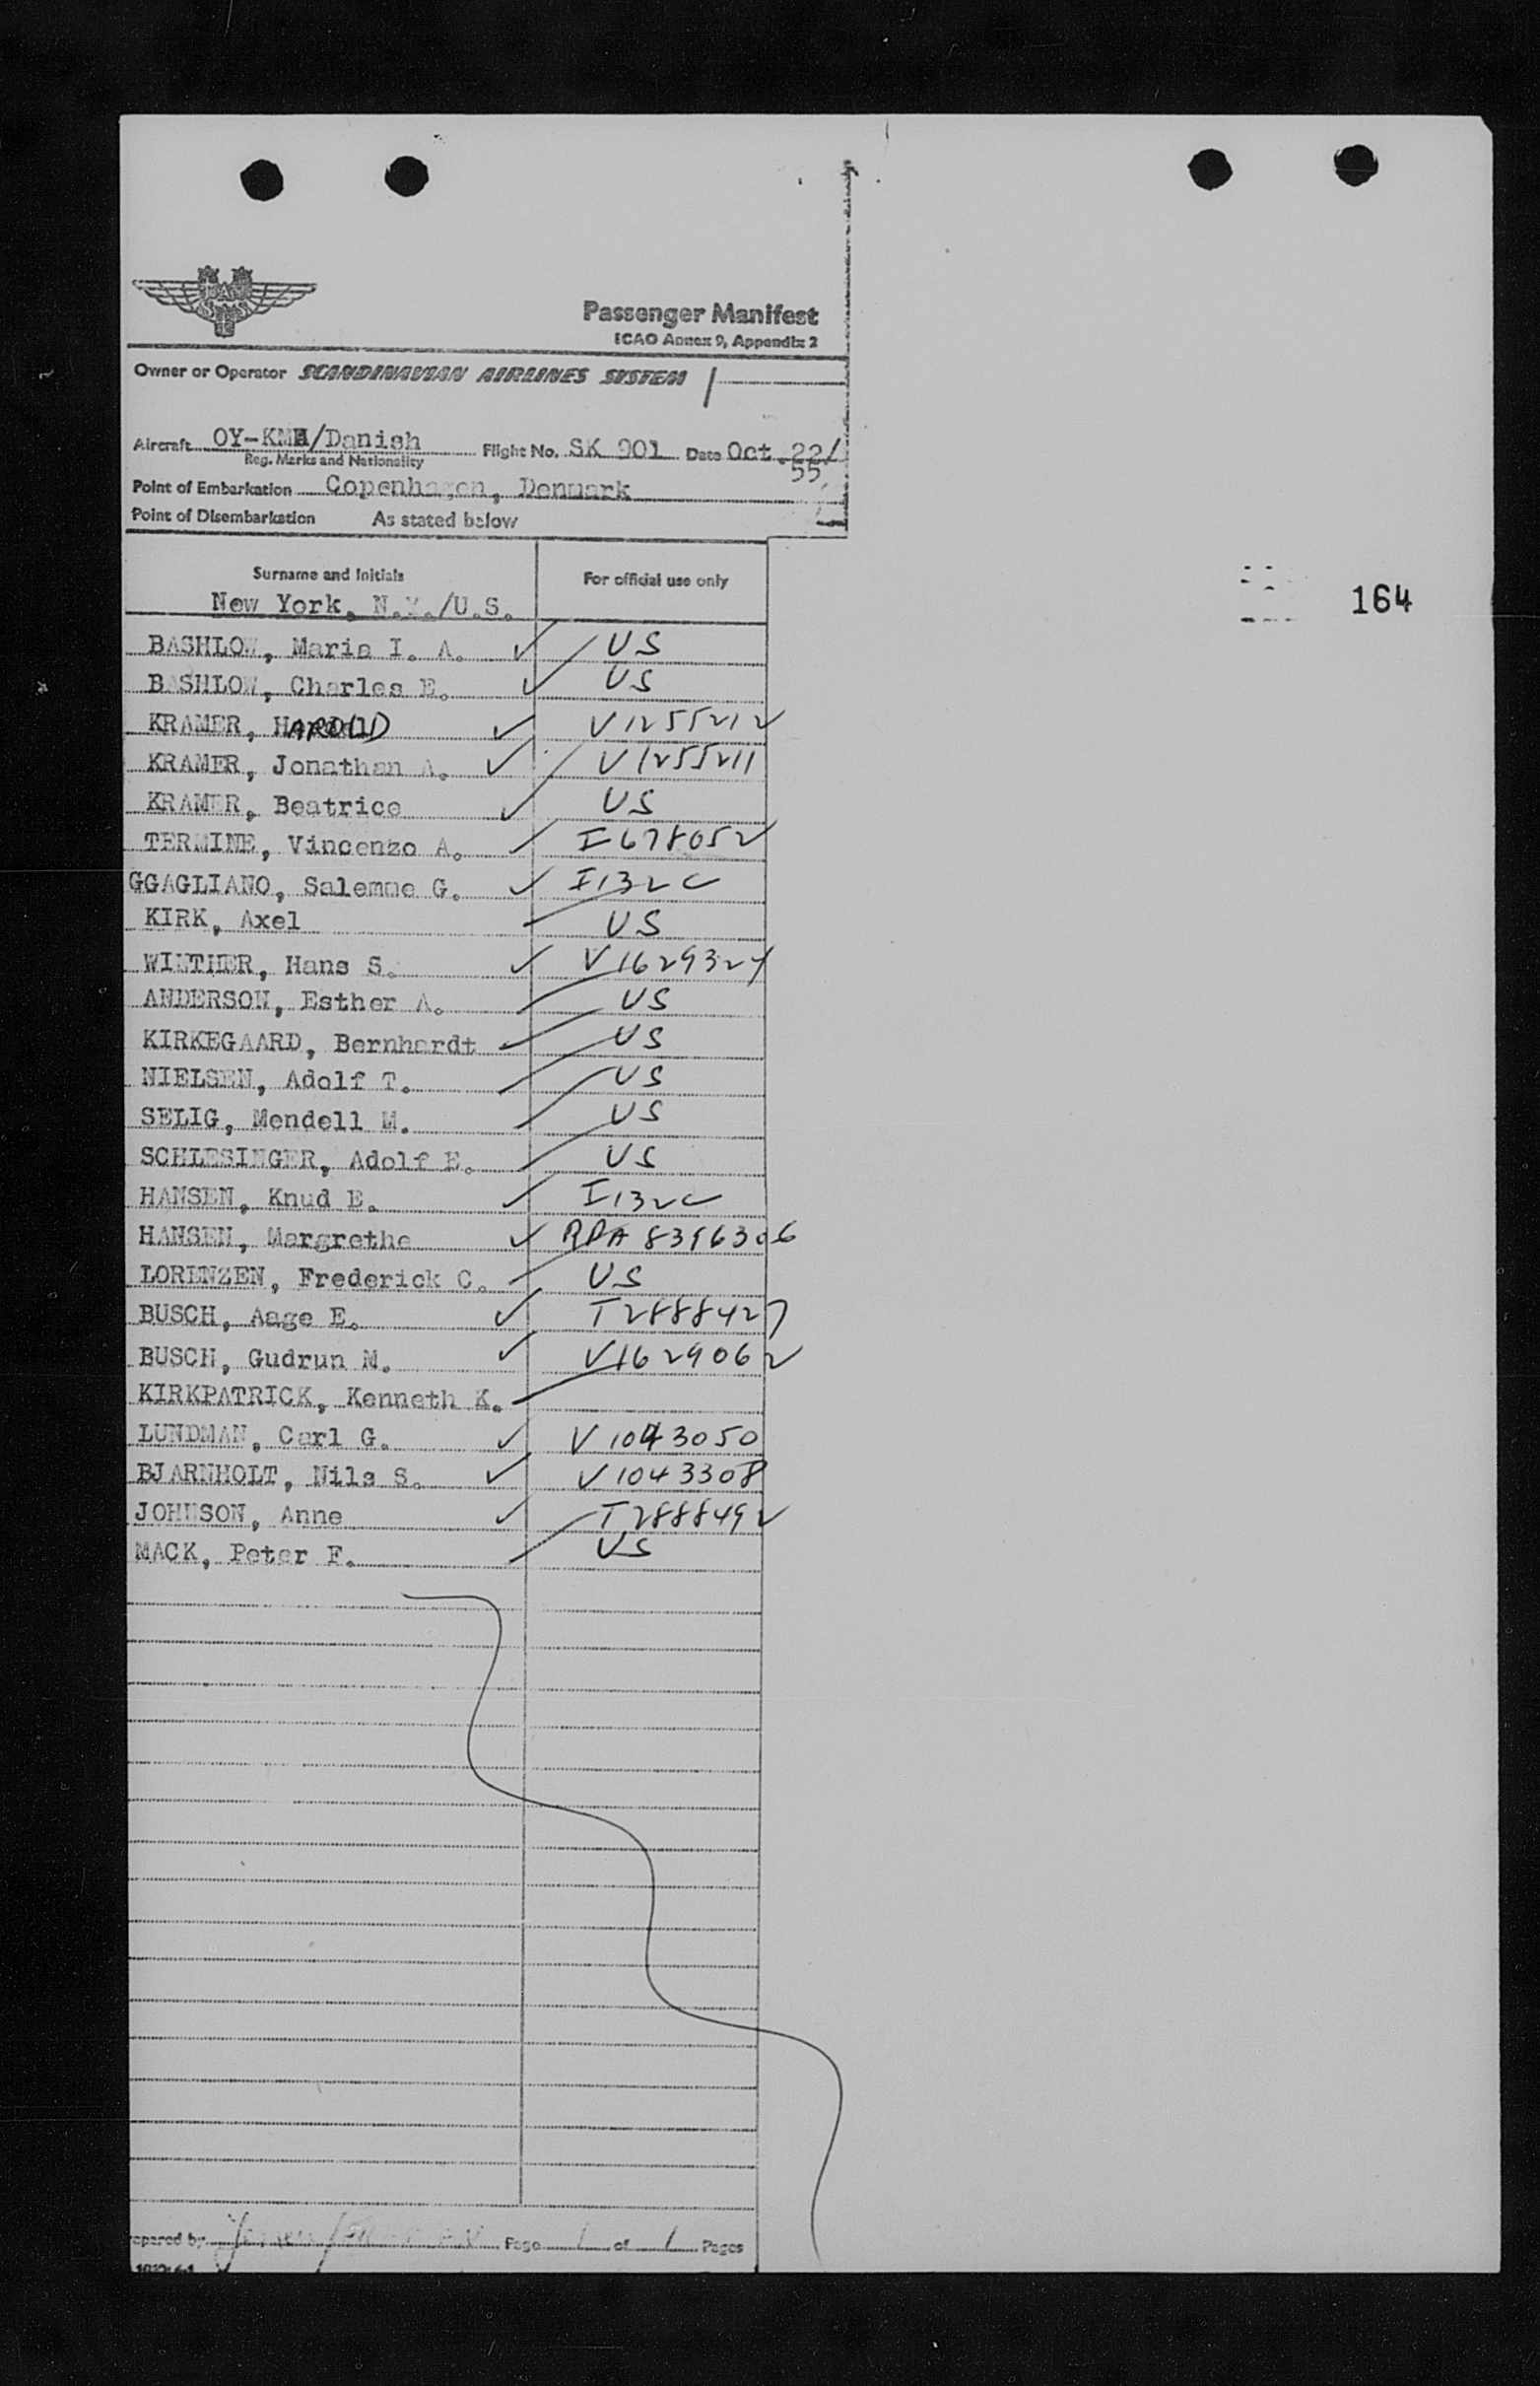 SAS
Passenger Manifest
ICAO Annex 9, Appendix 2
Owner or Operator SCANDINAVIAN AIRLINES SYSTEM
Aircraft OY-KMH/Danish Flight No. SK 901 Date Oct. 22/
55
Reg. Marks and Nationality
Point of Embarkation Copenhagen, Denmark
Point of Disembarkation As stated below
Surname and Initials For official use only
New York, N.Y./U.S.
164
BASHLOW, Maria I. A. US
BASHLOW, Charles E. US
KRAMER, HAROLD V1255212
KRAMER, Jonathan A. V1255211
KRAMER, Beatrice US
TERMINE, Vincenzo A. I678052
GGAGLIANO, Salemme G. I132C
KIRK, Axel US
WINTHER, Hans S. V1629324
ANDERSON, Esther A. US
KIRKEGAARD, Bernhardt US
NIELSEN, Adolf T. US
SELIG, Mendell M. US
SCHLESINGER, Adolf E. US
HANSEN, Knud E. I132C
HANSEN, Margrethe RPA 8396306
LORENZEN, Frederick C. US
BUSCH, Aage E. T2888427
BUSCH, Gudrun M. V1629062
KIRKPATRICK, Kenneth K.
LUNDMAN, Carl G. V1043050
BJARNHOLT, Nils S. V1043308
JOHNSON, Anne T2888492
MACK, Peter F. US
epared by Page 1 of 1 Pages